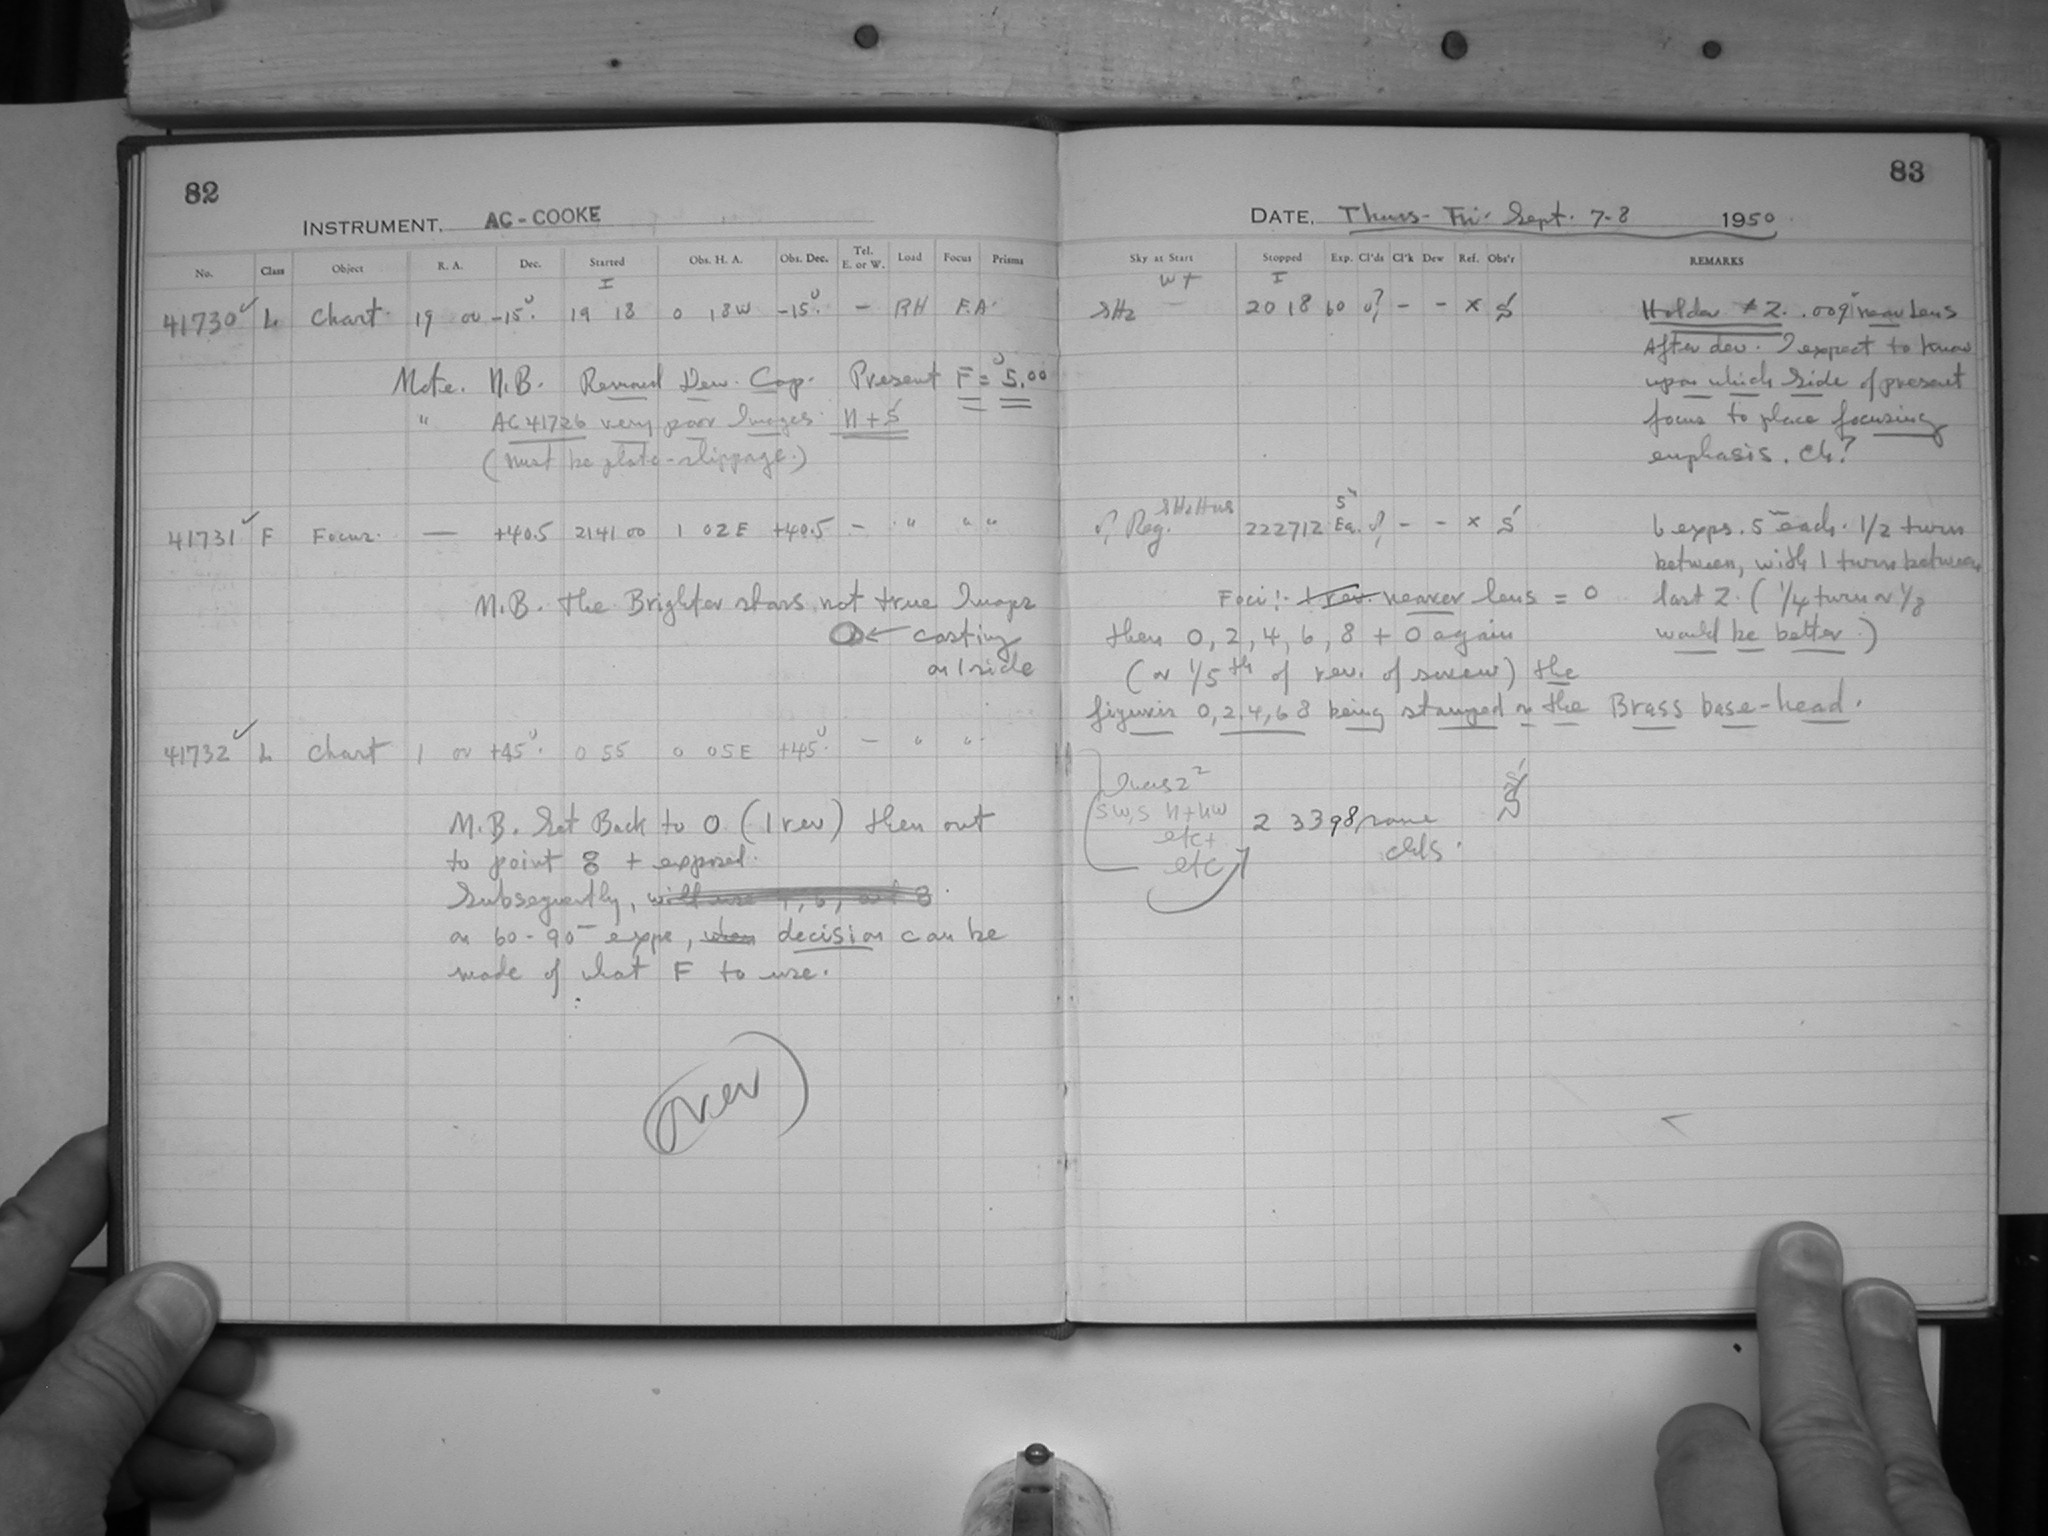 82
INSTRUMENT, AC-COOKE
No. Class Object R. A. Dec. Started Obs. H. A. Obs. Dec. Tel. E. or W. Load Focus Prisms
I
41730 L Chart 19 00 -15° 19 18 0 18W -15° - RH F.A.
Note. N.B. Removed Dew. Cap. Present F = 5.00
" AC 41726 very poor Images N + S
(must be plate-slippage.)
41731 F Focus. — +40.5 21 41 00 1 02 E +40.5 - " " "
N.B. The Brighter stars not true Images
← casting
on 1 side
41732 L Chart 1 00 +45° 0 55 0 05 E +45° - " "
N.B. Set Back to 0 (1 rev) then out
to point 8 + exposed.
Subsequently, will use 4, 6, and 8
on 60-90 exps, when decision can be
made of what F to use.
Over
83
DATE, Thurs-Fri. Sept. 7-8 1950
Sky at Start Stopped Exp. Cl'ds Cl'k Dew Ref. Obs'r REMARKS
I
SH2 20 18 60 0? - - x S Holder #2. .009" near Lens
After dev. I expect to know
upon which side of present
focus to place focusing
emphasis. Eh?
Reg. 22 27 12 5 Ea. - - x S 6 exps. 5 each. 1/2 turn
between, with 1 turn between
Foci:- 1 rev. nearer lens = 0 last 2. (1/4 turn or 1/8
then 0, 2, 4, 6, 8 + 0 again would be better.)
(or 1/5th of rev. of screw) the
figures 0, 2, 4, 6 8 being stamped on the Brass base-head.
SW, S N + NW
etc +
etc
2 33 98 some
clds.
S